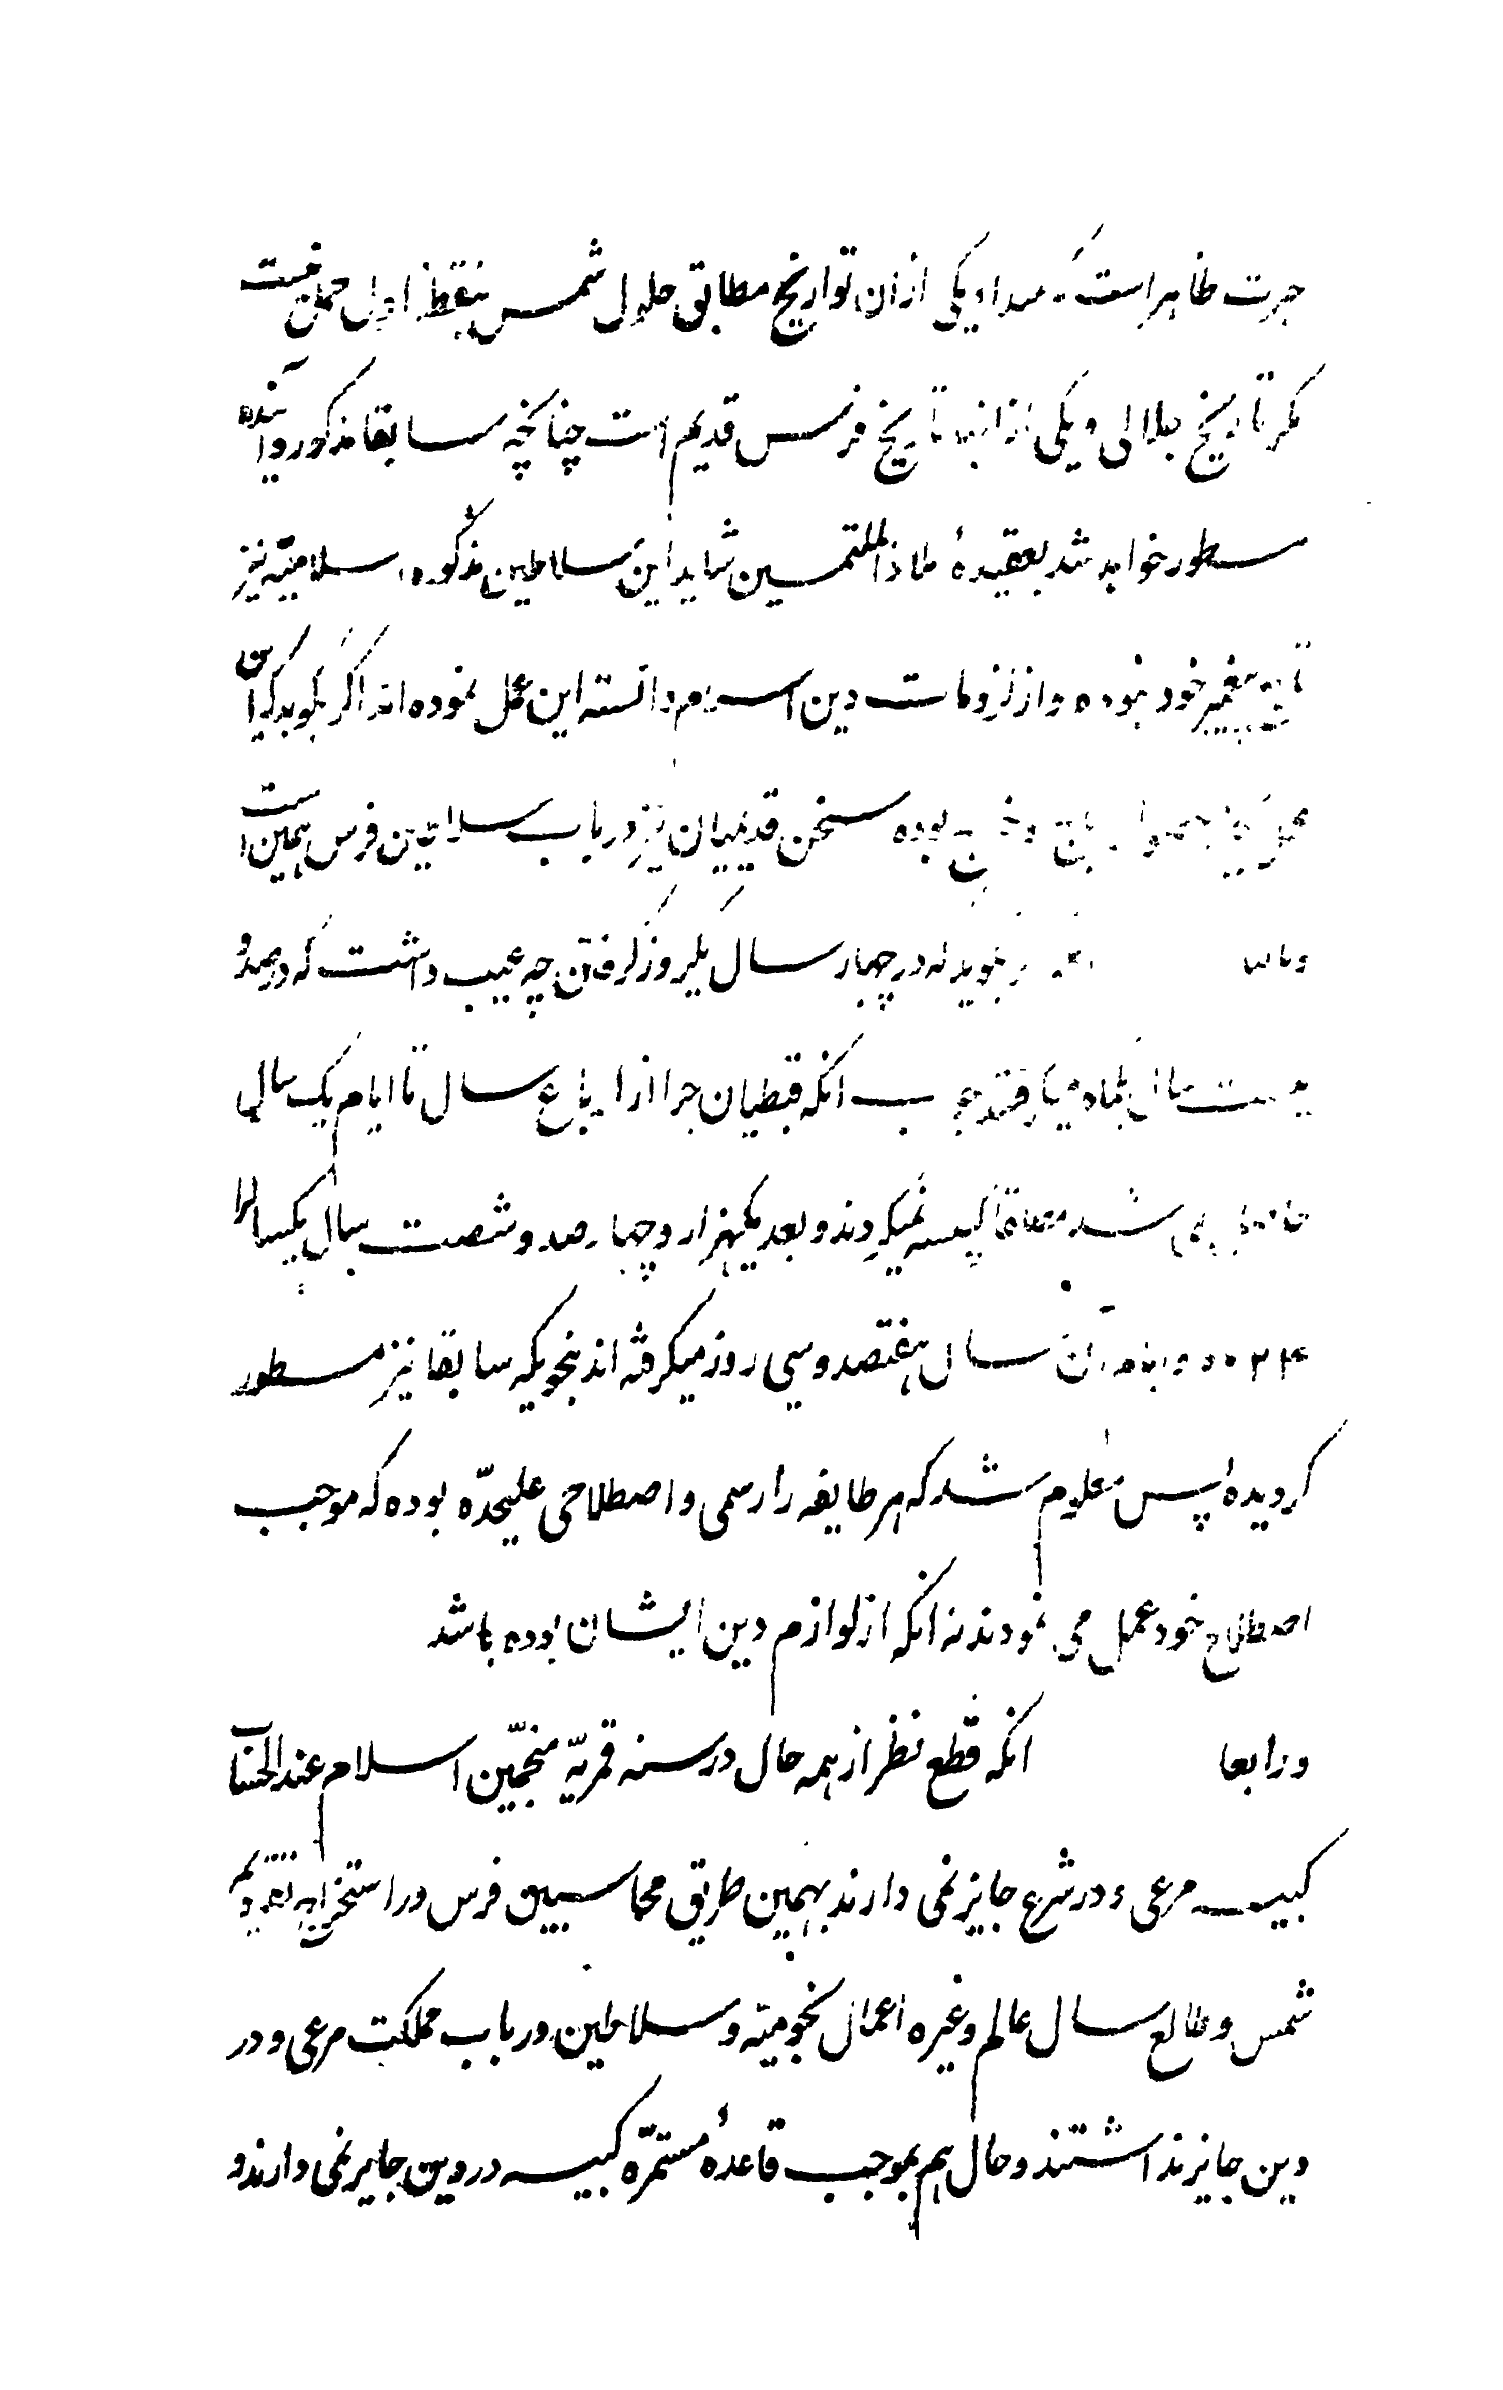 ظاهر است که مبدا و یکی ازان تواریخ مطابق حلول شمس بنقطهٔ اول حمل نیست
مکر تاریخ جلالی و یکی از آنها تاریخ فرس قدیم است چنانچه سابقا مذکور و آینده
مسطور خواهد شد بعقیدهٔ ملاذ الملتمسین شاید این سلاطین مذکوره اسلامیّه نیز
تابع پیغمبر خود نبوده و از لزومات دین اسلام دانسته این عمل نموده اند اکر بکوید که این
بوده سخن قدیمیان نیز در باب سلاطین فرس همین است
بکوید که در چهار سال یکروز کرفتن چه عیب داشت که در صد و
بیست سال یکماه میکرفتند جواب انکه قبطیان چرا از ارباع سال تا ایام یک سال
نمی شد مطلقا کبیسه نمیکردند و بعد یکهزار و چهار صد و شصت سال یکسال را
سال هفتصد و سی روز میکرفته اند بنحویکه سابقا نیز مسطور
کردیده پس معلوم شد که هر طایفه را رسمی و اصطلاحی علیحدّه بوده که موجب
اصطلاح خود عمل می نمودند نه انکه از لوازم دین ایشان بوده باشد
و رابعا انکه قطع نظر از همه حال در سنه قمریّه منجّمین اسلام عند الحساب
کبیسه مرعی و در شرع جایز نمی دارند بهمین طریق محاسبین فرس در استخراج تقویم
شمس و طالع سال عالم و غیره اعمال نجومیّه و سلاطین در باب مملکت مرعی و در
دین جایز نداشتند و حال هم بموجب قاعدهٔ مستمرّه کبیسه در دین جایز نمی دارند و